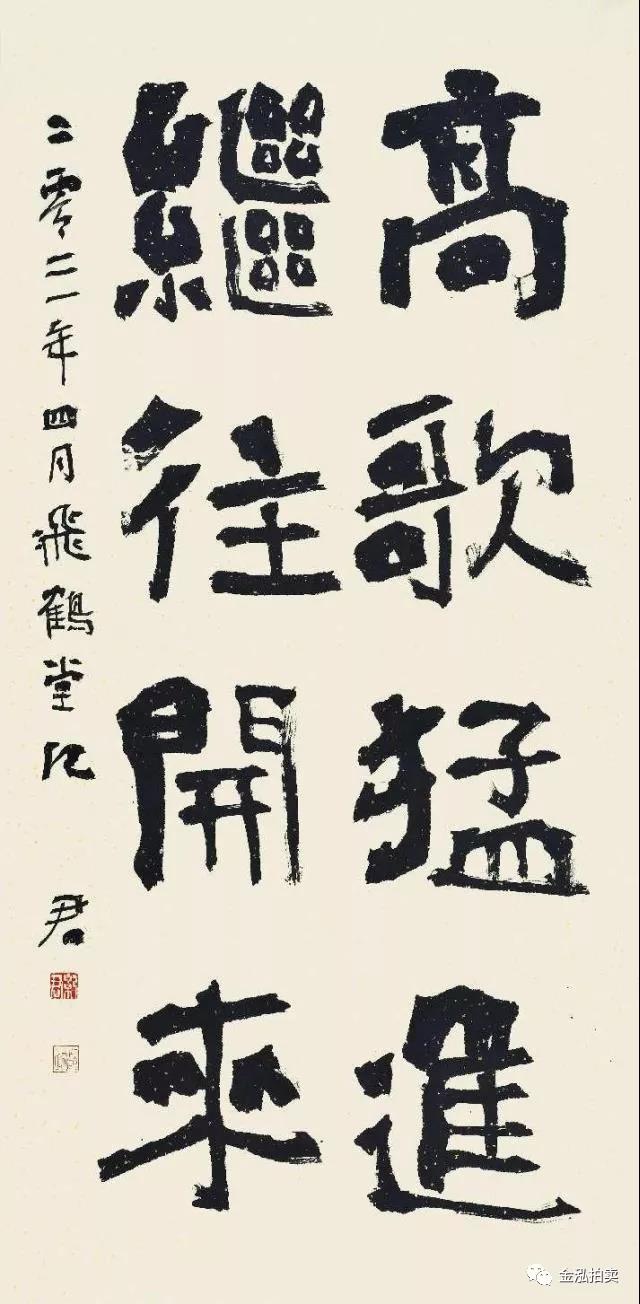 高歌猛進
繼往開來
二零二一年四月飛鶴堂記 君
金泓拍卖